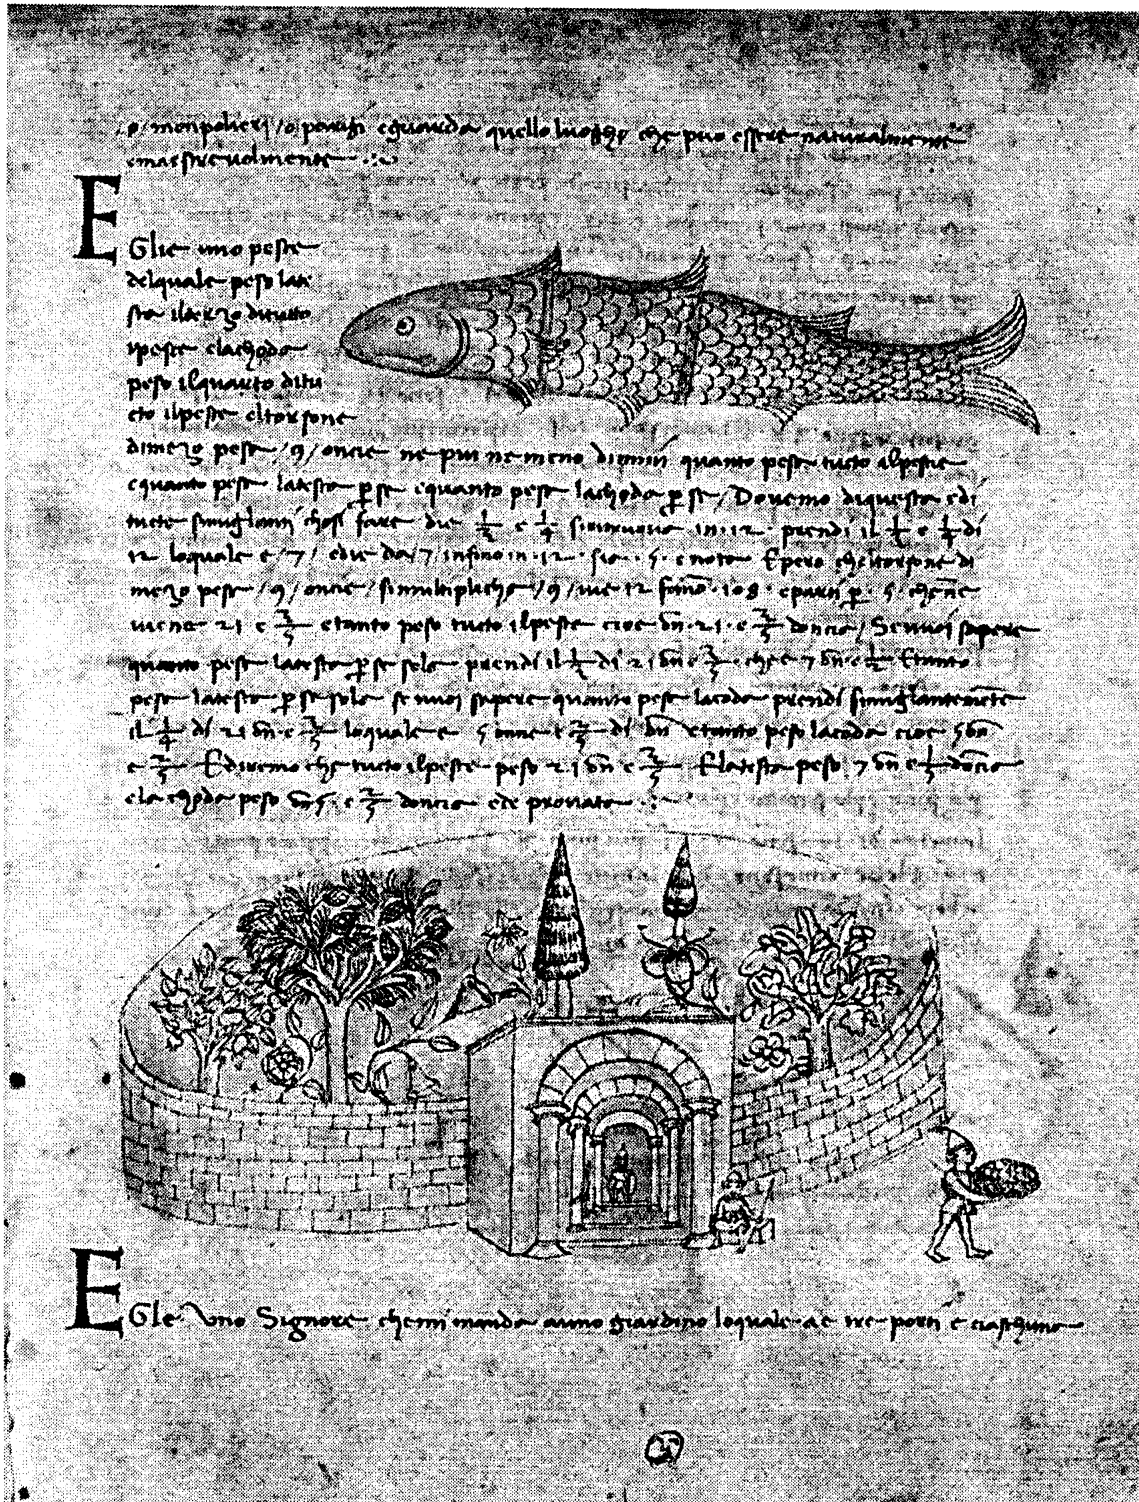 o/ monpolieri /o parigi eguarda quello luogho che puo essere naturalmente
emaestrevolmente
E
Glie uno pescie
delquale pesa late
sta ilterzo ditutto
ipesce elachoda
pesa ilquarto ditu
cto ilpescie eltorsone
dimezo pesa /9/ oncie ne piu ne meno dimmi quanto pesa tucto alpescie
equanto pesa latesta p se equanto pesa lachoda p se / Dovemo diquesta edi
tucte simiglianti chosi fare die 1/3 e 1/4 sitruova in ·12· prendi il 1/3 e 1/4 di
12 loquale e /7/ edie da /7/ infino in ·12· sia ·5· enota Epero cheltorsone di
mezo pesa /9/ oncie / simultiplicha /9/ vie 12 fanno ·108· eparti p ·5· chene
viene 21 e 3/5 etanto pesa tucto ilpescie cioe on ·21· e 3/5 doncia / Se vuoi sapere
quanto pesa latesta p se sola prendi il 1/3 di 21 on e 3/5 · che e 7 on e 1/5 Etanto
pesa latesta p se sola se vuoi sapere quanto pesa lacoda prendi simiglantemente
il 1/4 di 21 on e 3/5 loquale e 5 once e 2/5 di on etanto pesa lacoda cioe 5 on
e 2/5 Ediremo che tucto ilpescie pesa 21 on e 3/5 Elatesta pesa 7 on e 1/5 doncia
ela choda pesa on 5 · e 2/5 doncia ede provata
E
Gle Uno Signore chemi manda auno giardino loquale a e tre porti e ciaschuna